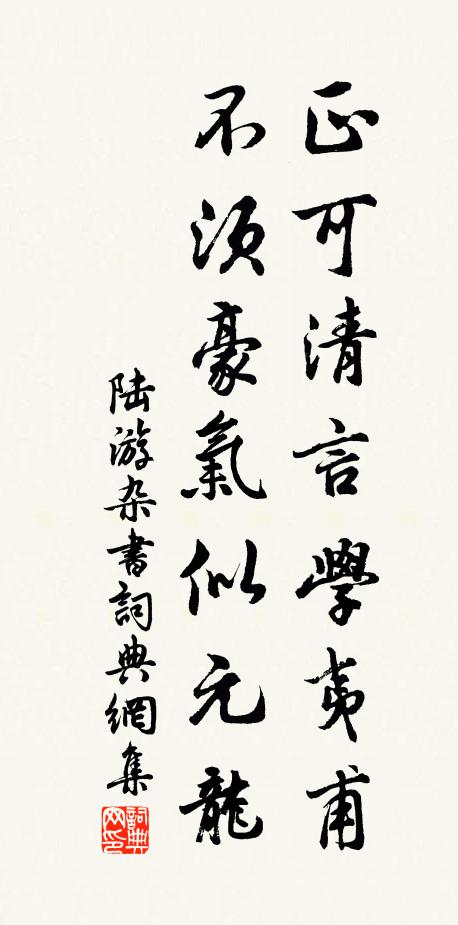 正可清言學夷甫
不須豪氣似元龍
陆游杂書詞典網集
詞典
网印